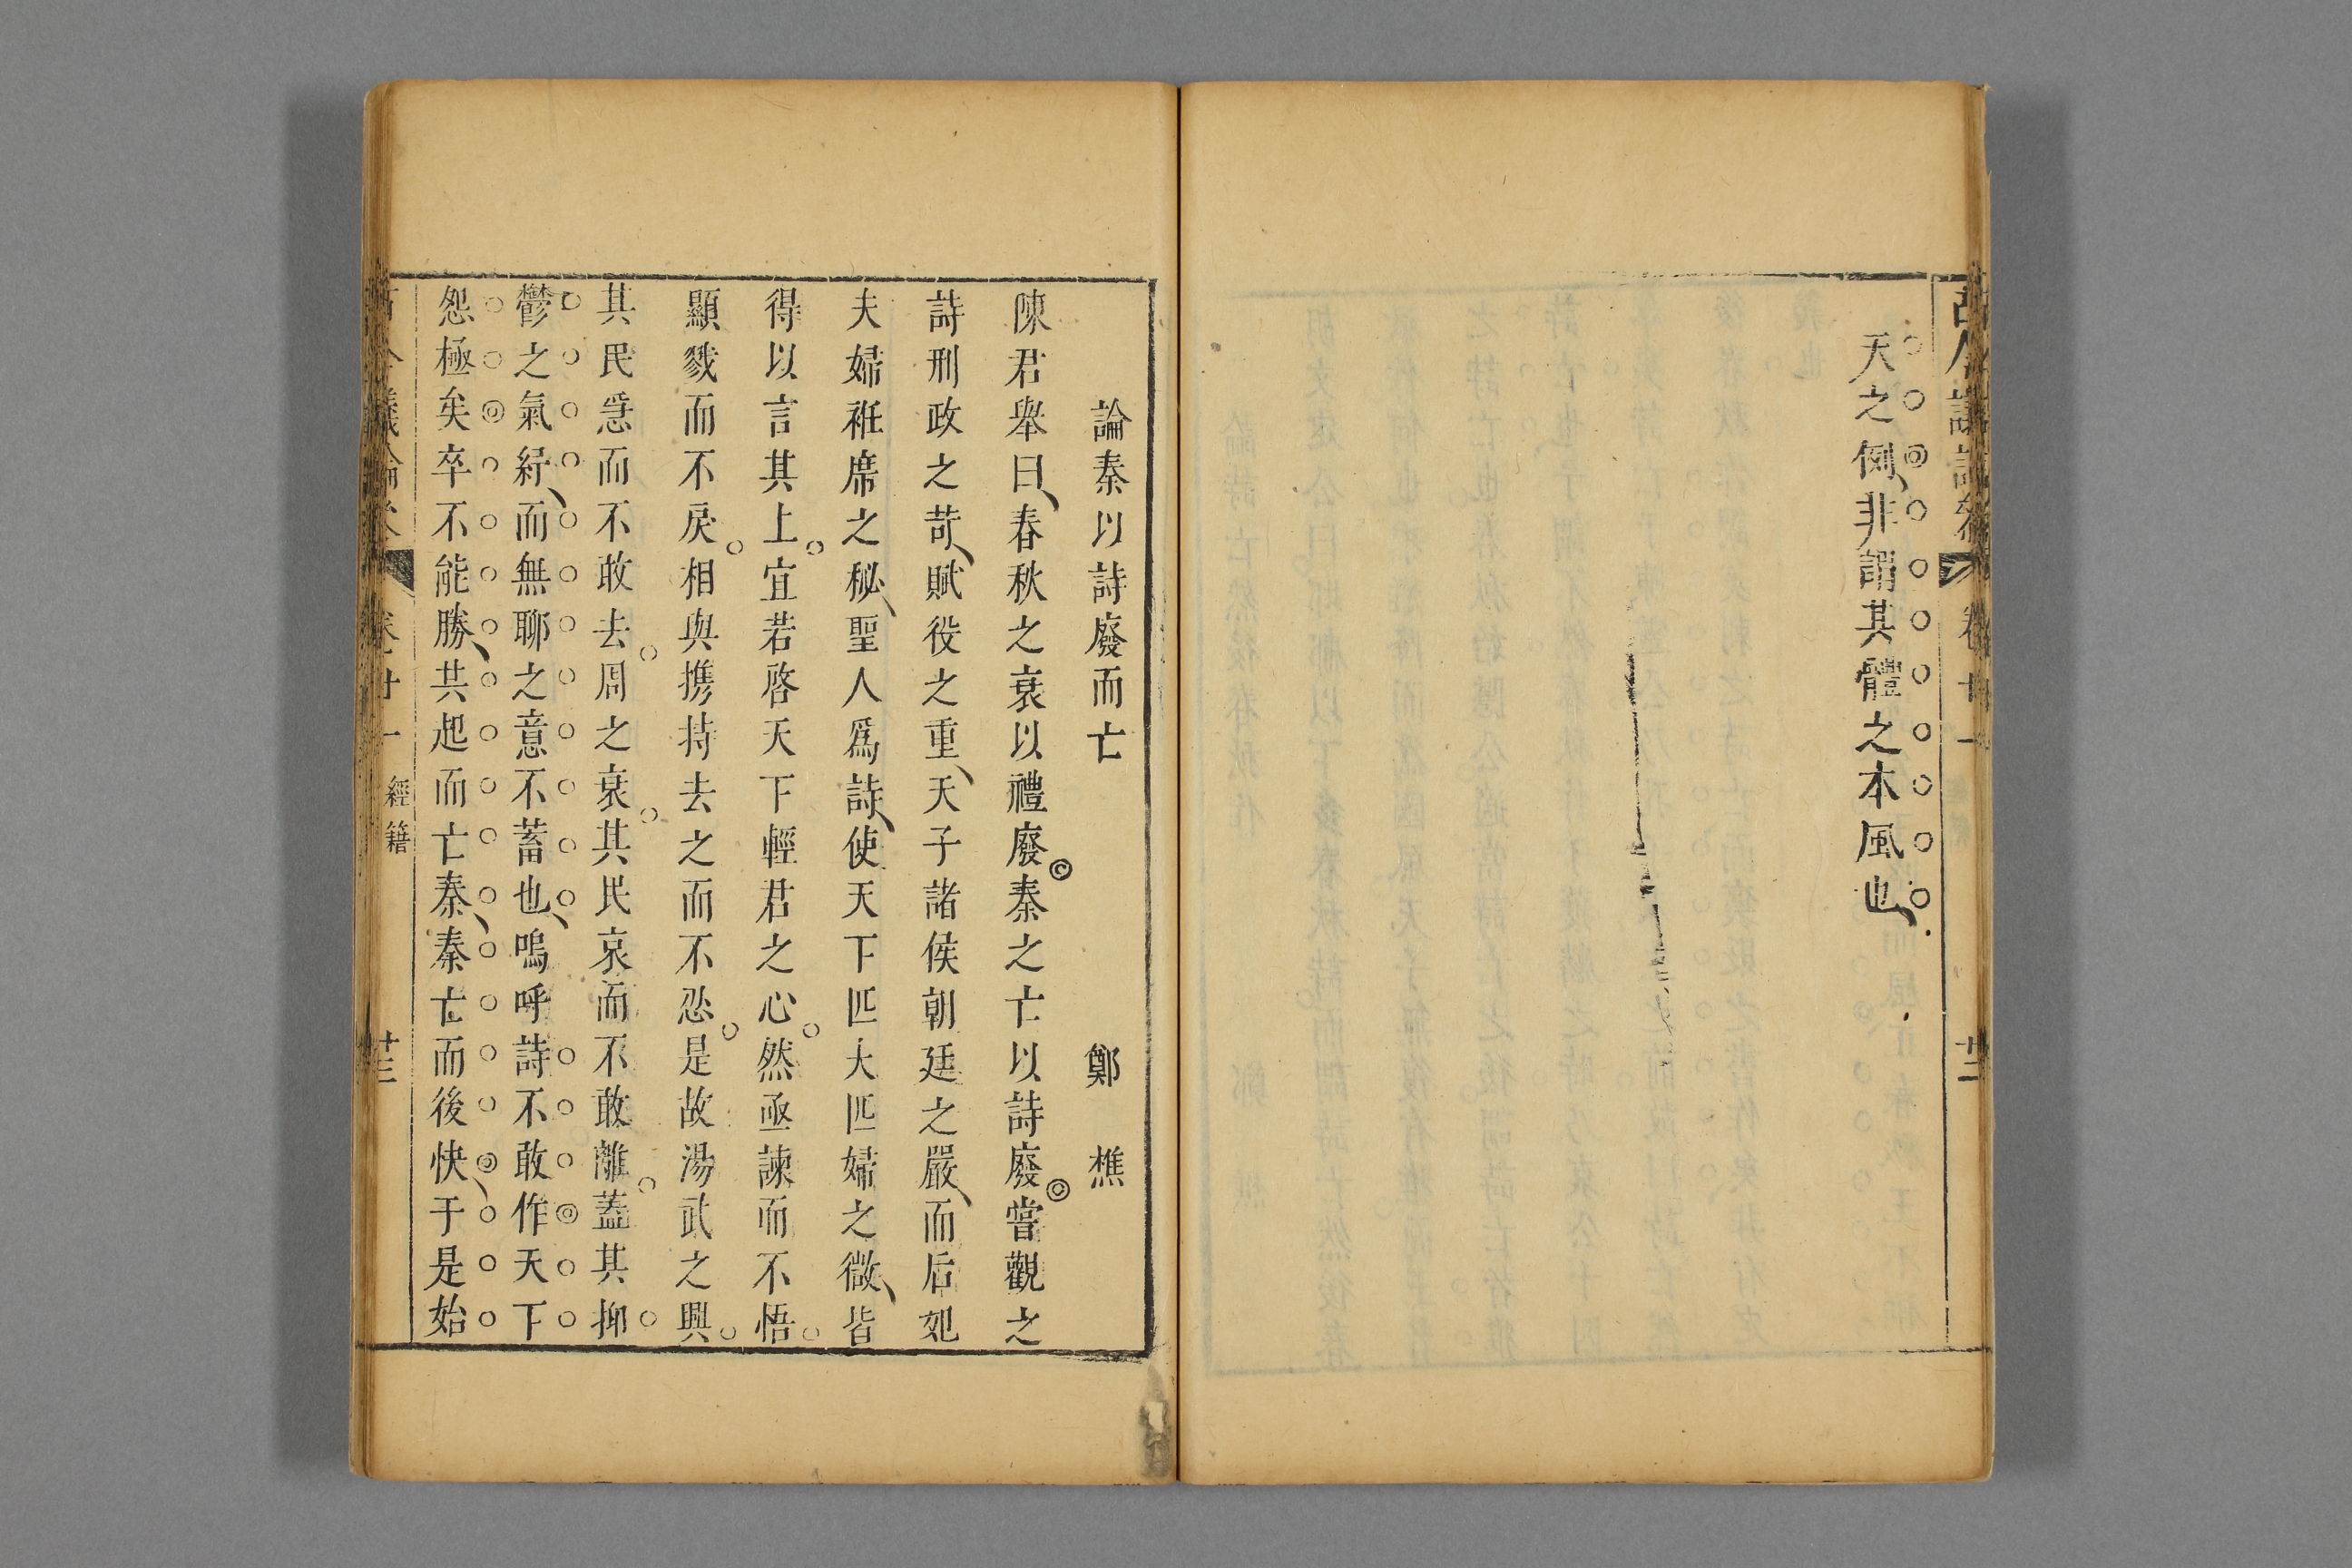 天之例非謂其體之本風也
卷廿一
論秦以詩廢而亡 鄭樵
陳君舉曰春秋之衰以禮廢秦之亡以詩廢嘗觀之
詩刑政之苛賦役之重天子諸侯朝廷之嚴而后妃
夫婦袵席之秘聖人爲詩使天下匹夫匹婦之微皆
得以言其上宜若啓天下輕君之心然亟諫而不悟
顯戮而不戾相與攜持去之而不忍是故湯武之興
其民急而不敢去周之衰其民哀而不敢離蓋其抑
鬱之氣紓而無聊之意不蓄也嗚呼詩不敢作天下
怨極矣卒不能勝共起而亡秦秦亡而後快于是始
經籍